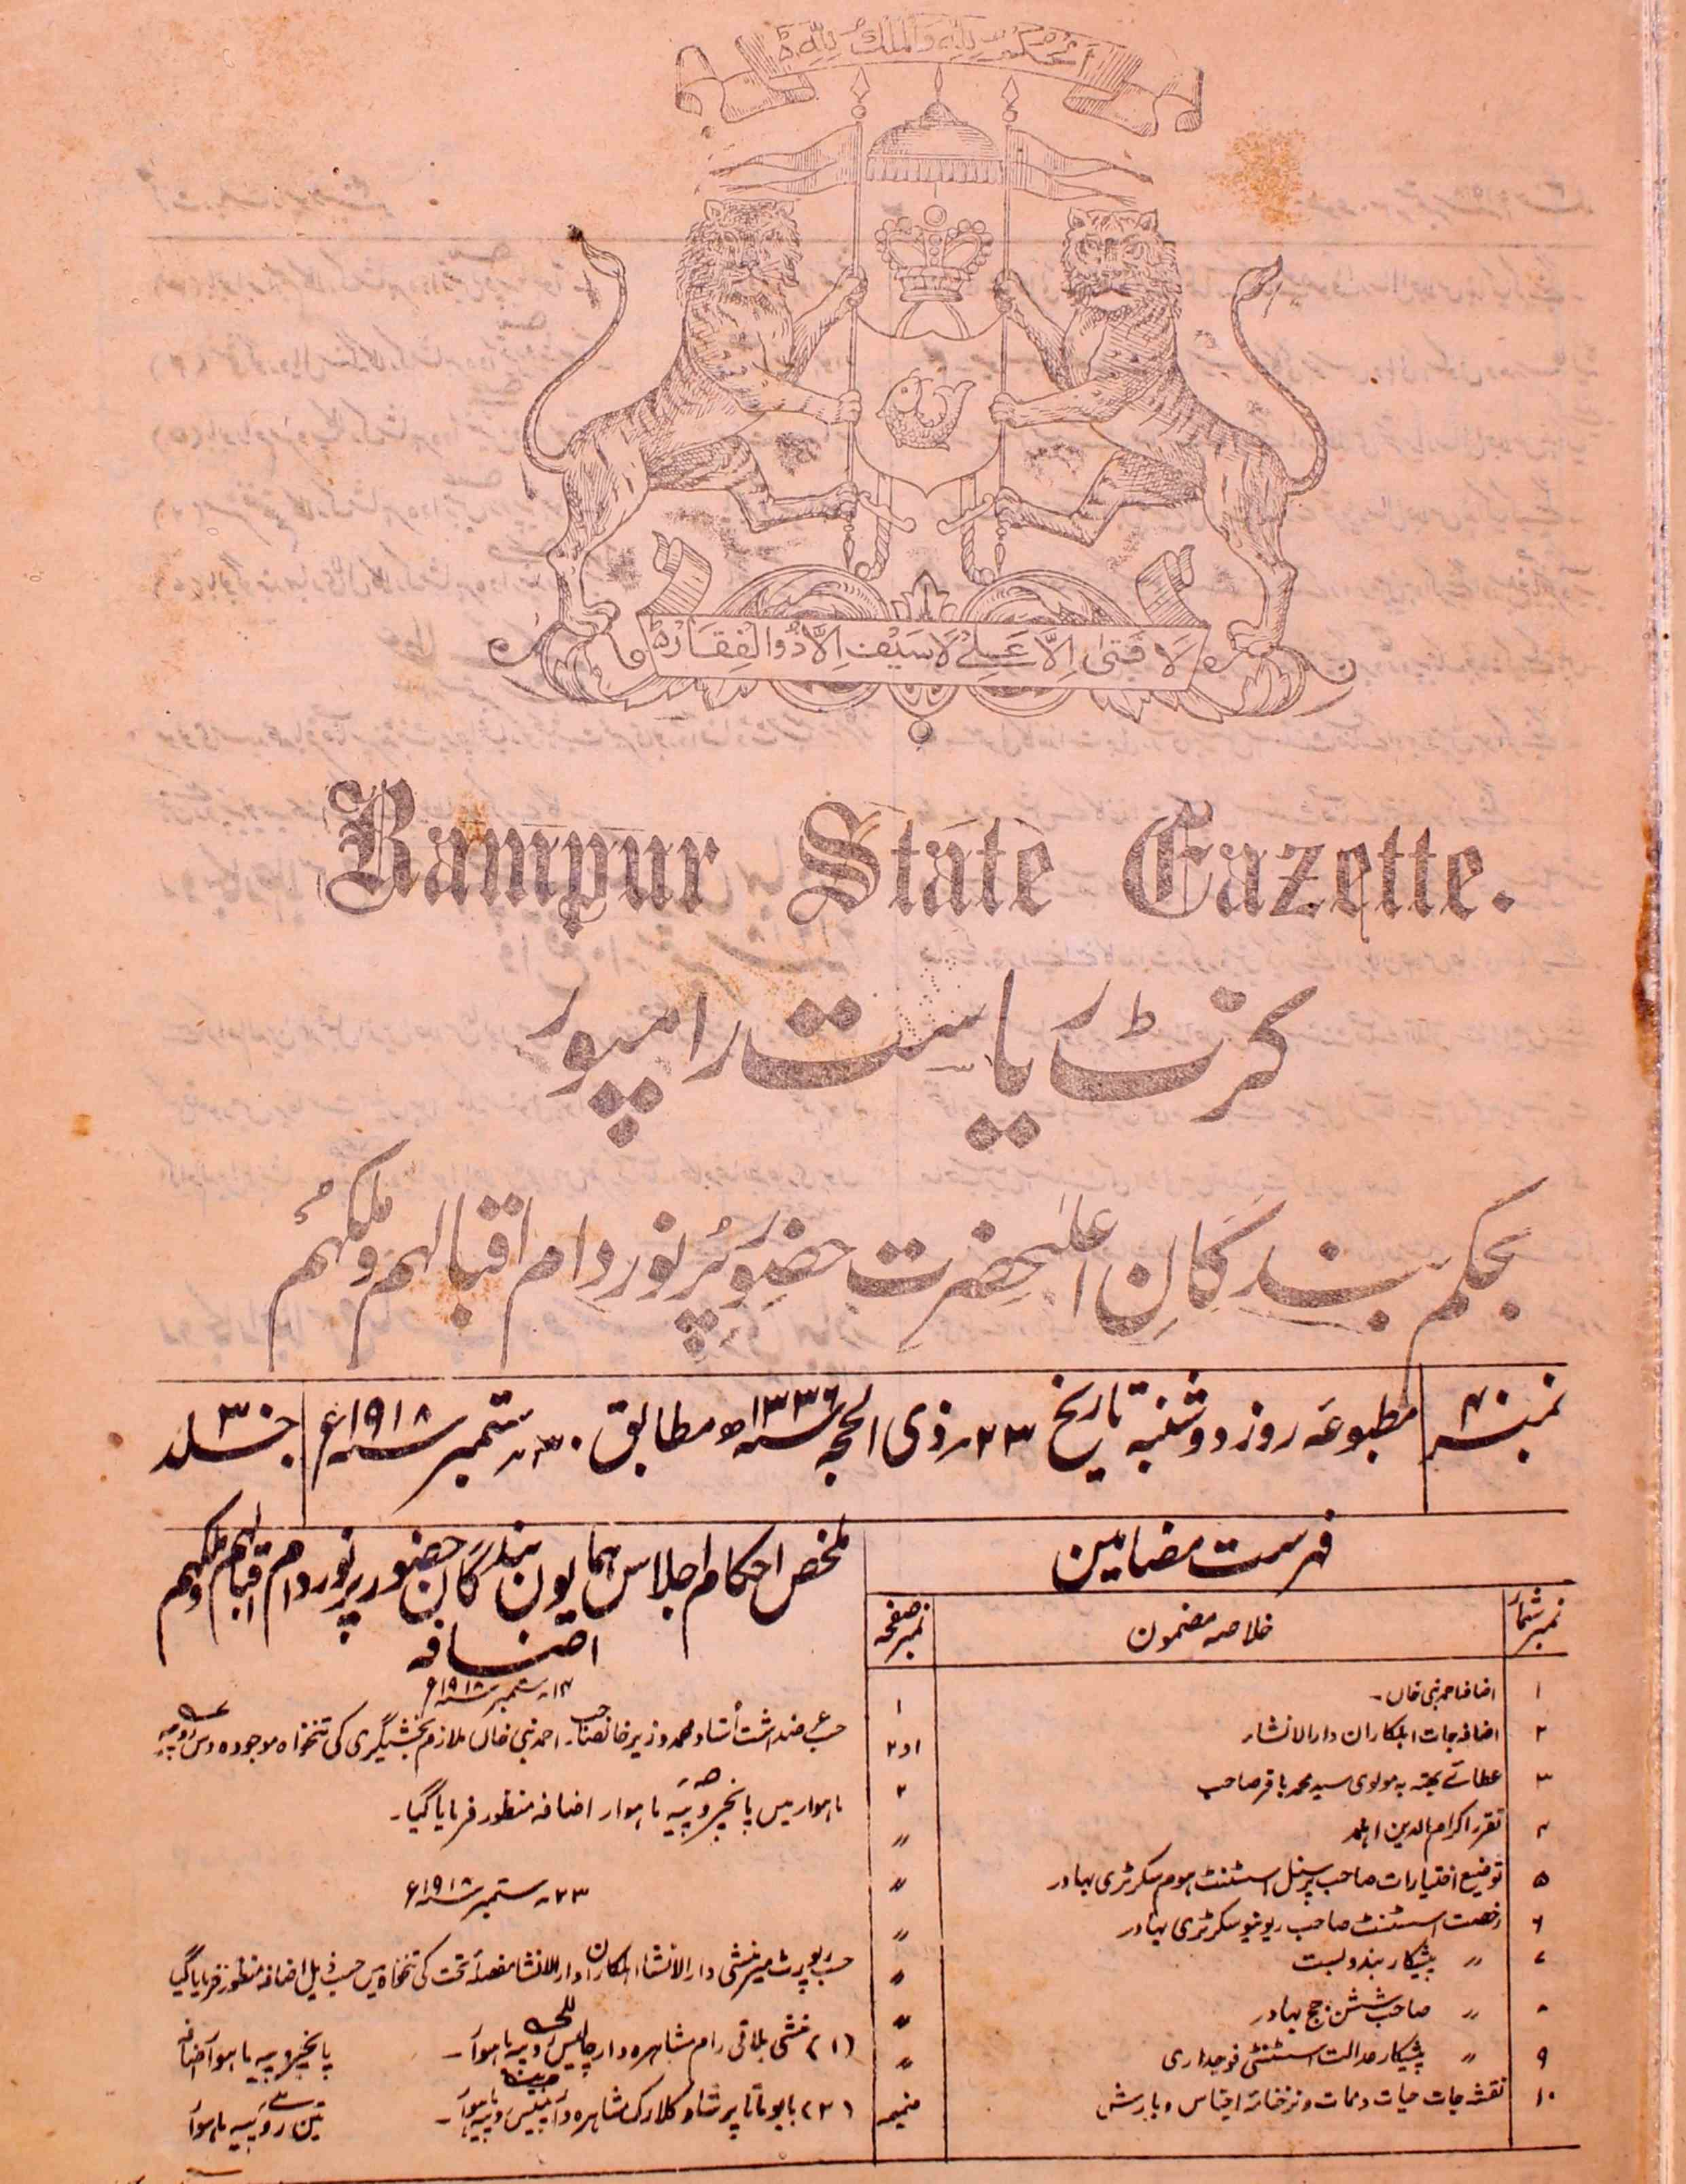 الحکم للہ والملک للہ
لَا فَتٰی اِلَّا عَلِی لَا سَیْفَ اِلَّا ذُوالْفِقَار
Rampur State Gazette.
گزٹ ریاست رامپور
بحکم بندگانِ اعلیٰحضرت حضور پُرنور دام اقبالہم وملکہُم
نمبر ۴۰ مطبوعہ روز دوشنبہ تاریخ ۲۳؍ ذی الحجہ سنہ ۱۳۳۶ھ مطابق ۳۰؍ ستمبر سنہ ۱۹۱۸ء جلد ۳
فہرست مضامین
نمبر شمار خلاصہ مضمون نمبر صفحہ
۱ اضافہ احمد نبی خاں۔ ۱
۲ اضافہ جات اہلکاران دارالانشار ۱و۲
۳ عطائے بھتہ بہ مولوی سید محمد باقر صاحب ۲
۴ تقرر اکرام الدین اہلمد ״
۵ توضیع اختیارات صاحب پرسنل اسسٹنٹ ہوم سکرٹری بہادر ״
۶ رخصت اسسٹنٹ صاحب ریونیو سکرٹری بہادر ״
۷ ״ پیشکار بندوبست ״
۸ ״ صاحب شسن جج بہادر ״
۹ ״ پیشکار عدالت اسسٹنٹی فوجداری ״
۱۰ نقشہ جات حیات وممات ونرخنامہ اجناس وبارش ضمیمہ
ملخص احکام اجلاس ہمایون بندگان حضور پرنور دام اقبالہم وملکہم
اضافہ
۱۴؍ ستمبر سنہ ۱۹۱۸ء
حسب عرضداشت اُستاد محمد وزیر خانصاحب۔ احمد نبی خاں ملازم بخشیگری کی تنخواہ موجودہ دس روپیہ
ماہوار میں پانچروپیہ ماہوار اضافہ منظور فرمایا گیا۔
۲۳؍ ستمبر سنہ ۱۹۱۸ء
حسب رپورٹ میر منشی دارالانشا اہلکاران دارالانشا مفصلہ تحت کی تنخواہ میں حسب ذیل اضافہ منظور فرمایا گیا
(۱) منشی بلاقی رام مشاہرہ دار چالیس روپیہ ماہوار۔ پانچروپیہ ماہوار اضافہ
(۲) بابو ماتا پرشاد کلارک مشاہرہ دار بیس روپیہ ماہوار۔ تین روپیہ ماہوار